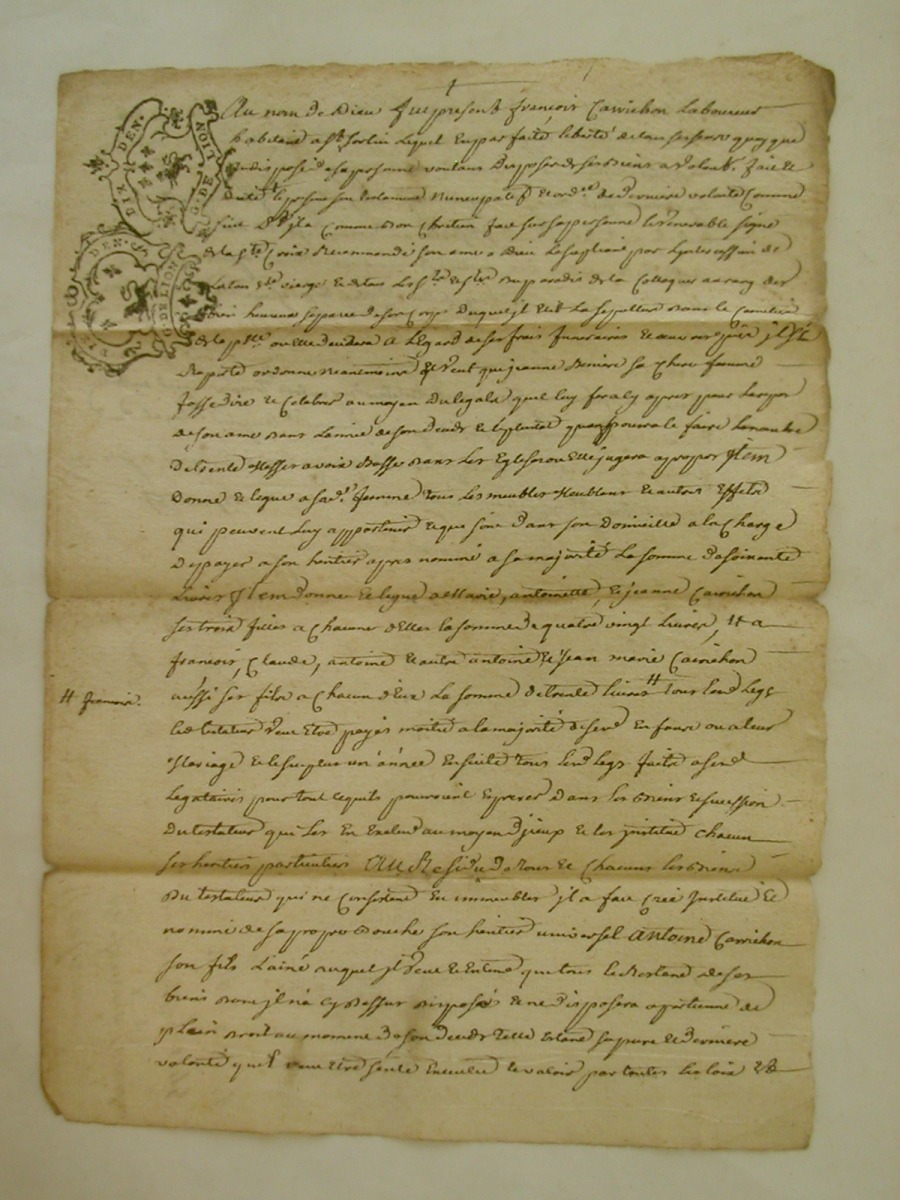 DIX DEN.
G. DE
DEN.
G. DE LION
Au nom de Dieu fut present françois Carrichon Laboureur
habitant a St. sorlin Lequel En parfaite liberté de tous ses sens quoyque
Indisposé de sa personne voulant Disposer de ses Biens a volonté fait et
Dicté le present son testament Nuncupatif et ord.re de Derniere volonté Comme
suit comme Bon Chretien fait sur sa personne le venerable signe
de la Ste. Croix Recommandé son ame a Dieu La supliant par Lyntercession de
vierge et de tous Les Sts. et Stes. En paradis de la Colloquer au rang des
Bien heureux separée de son Corps Duquel Elit La sepulture Dans le Cimetiere
de la p.sse ou elle decedera A L'Egard de ses frais funeraires
Raporté ordonne Neanmoins et Veut que jeanne sa Chere femme
fasse Dire et Celebrer au moyen du legat quil luy fera Cy apres pour Le repos
de son ame Dans L'année de son Decedz et le plutot que pourra le faire Le nombre
De trente Messes a voix Basse Dans Les Eglises ou Elle jugera apropos Item
Donne et legue a sad.e femme tous les meubles Meublants et autres Effets
qui peuvent Luy appartenir et que sont Dans son Domicille a la Charge
De payer a son heritier apres nommé a sa majorité La somme de soixante
Livres Item Donne et legue a Marie, antoinette, et jeanne Carrichon
ses trois filles a Chacune d'Elles la somme de quatre vingt Livres, et a
françois, Claude, antoine et autre antoine et jean marie Carrichon
aussi ses fils a Chacun d'Eux La somme de trente livres # tous lesd. Legs
led. testateur veut Etre payés moitié a la majorité de sesd. Enfans ou a leur
Mariage et le surplus un année Ensuite tous lesd. legs faits a sesd.
Legataires pour tout ce quils pourroient Esperer Dans les Biens et succession
Du testateur qui les En Exclud au moyen D'jceux et les jnstitue Chacun
ses heritiers particuliers Au Residu De tous et Chacuns les Biens
Du testateur qui ne Consistent En immeubles jl a fait Créé Jnstitué Et
nommé de sa propre Bouche Son heritier universel Antoine Carrichon
son fils L'ainé auquel jl Veut et Entend que tous le Restant de ses
biens Dont jl n'a Cy Dessus Disposés et ne Disposera apartienne de
plein Droit au moment De son Decedz telle Etant sa pure et Derniere
volonté quil veut Etre Executée et valoir par toutes les loix &
# françois.